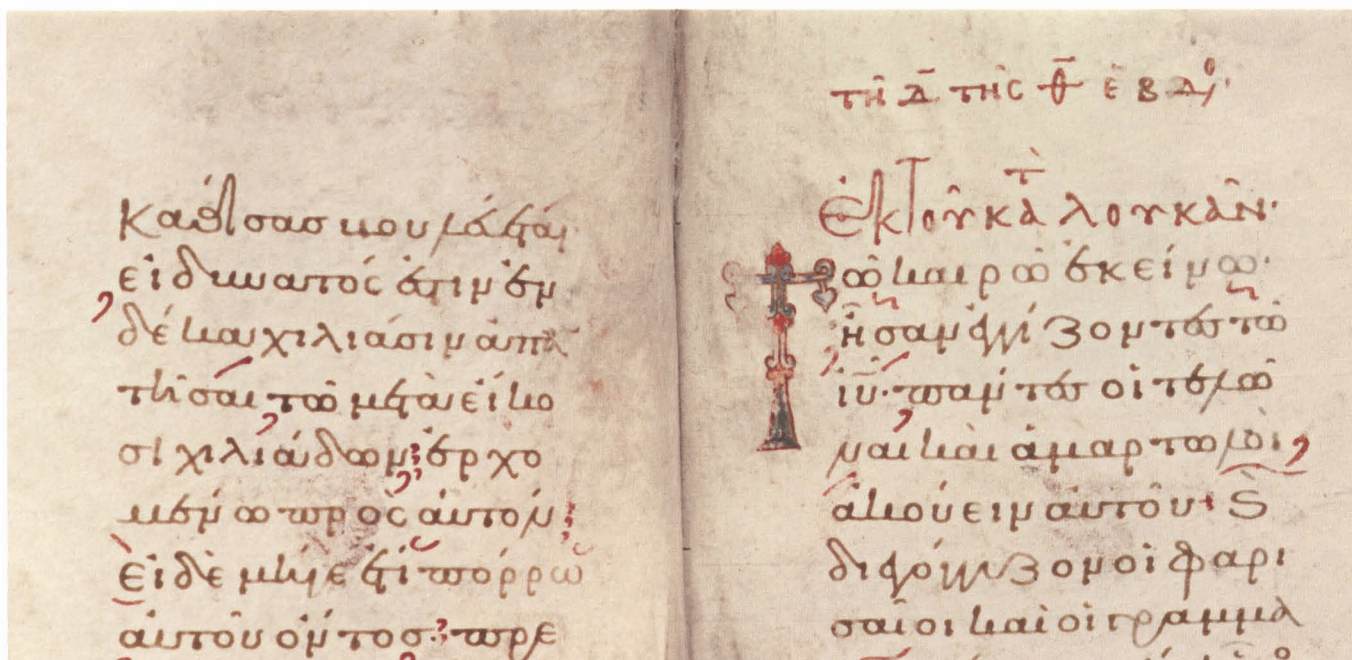 Καθίσας βουλεύεται
εἰ δυνατός ἐστιν ἐν
δέκα χιλιάσιν ἀπαν
τῆσαι τῶ μετὰ εἴκο
σι χιλιάδων ἐρχο
μένω πρὸς αὐτόν
Εἰ δὲ μήγε ἔτι πόρρω
αὐτοῦ ὄντος· πρε
τῆ δ̅ τῆς θ̅ ἑβδο
Ἐκ τοῦ κατ λουκᾶν·
Τῶ καιρῶ ἐκείνω·
ἦσαν ἐγγίζοντες τῶ
ιῦ· πάντες οἱ τελῶ
ναι καὶ ἁμαρτωλοὶ
ἀκούειν αὐτοῦ· ϗ
διεγόγγυζον οἱ φαρι
σαῖοι καὶ οἱ γραμμα